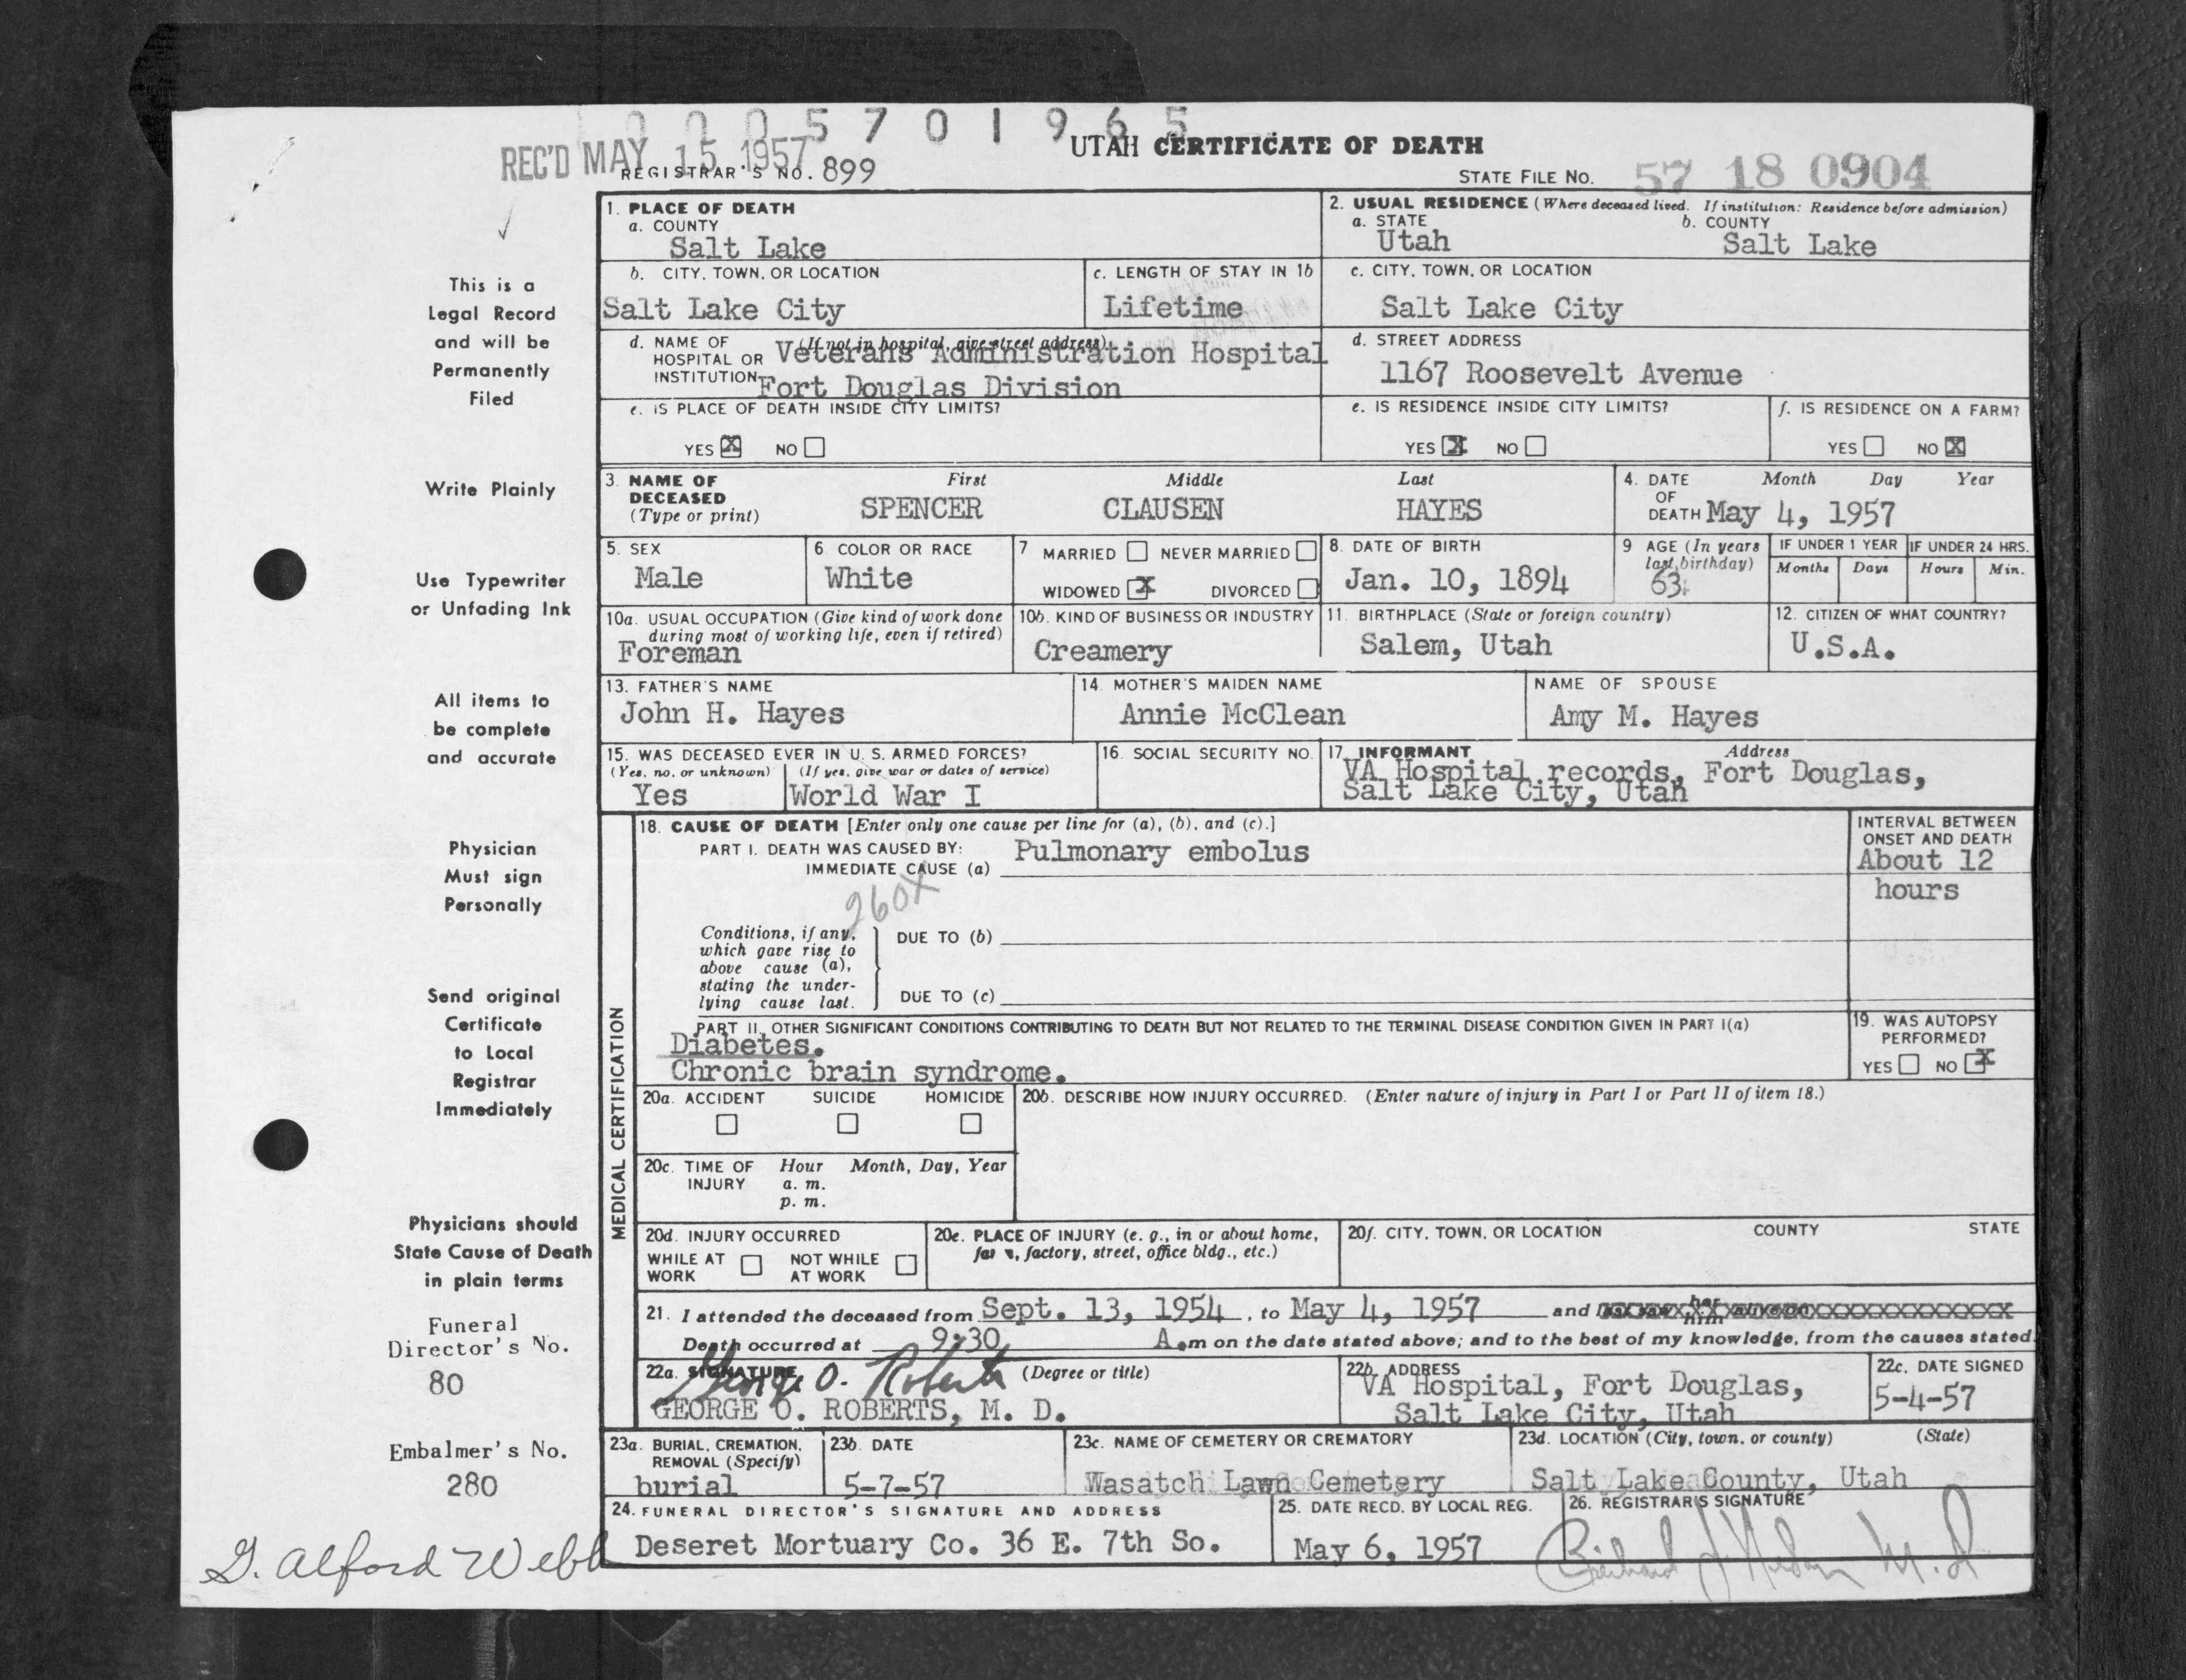 0 0 0 5 7 0 1 9 6 5
REC'D MAY 15 1957
UTAH CERTIFICATE OF DEATH
REGISTRAR'S NO. 899
STATE FILE NO. 57 18 0904
This is a
Legal Record
and will be
Permanently
Filed
Write Plainly
Use Typewriter
or Unfading Ink
All items to
be complete
and accurate
Physician
Must sign
Personally
Send original
Certificate
to Local
Registrar
Immediately
Physicians should
State Cause of Death
in plain terms
Funeral
Director's No.
80
Embalmer's No.
280
G. Alford Webb
1. PLACE OF DEATH
a. COUNTY
Salt Lake
2. USUAL RESIDENCE (Where deceased lived. If institution: Residence before admission)
a. STATE b. COUNTY
Utah Salt Lake
b. CITY, TOWN, OR LOCATION
Salt Lake City
c. LENGTH OF STAY IN 1b
Lifetime
c. CITY, TOWN, OR LOCATION
Salt Lake City
d. NAME OF (If not in hospital, give street address)
HOSPITAL OR Veterans Administration Hospital
INSTITUTION Fort Douglas Division
d. STREET ADDRESS
1167 Roosevelt Avenue
e. IS PLACE OF DEATH INSIDE CITY LIMITS?
YES X NO
e. IS RESIDENCE INSIDE CITY LIMITS?
YES X NO
f. IS RESIDENCE ON A FARM?
YES NO X
3. NAME OF First Middle Last
DECEASED
(Type or print) SPENCER CLAUSEN HAYES
4. DATE Month Day Year
OF
DEATH May 4, 1957
5. SEX
Male
6. COLOR OR RACE
White
7 MARRIED NEVER MARRIED
WIDOWED X DIVORCED
8. DATE OF BIRTH
Jan. 10, 1894
9 AGE (In years
last birthday)
63
IF UNDER 1 YEAR
Months Days
IF UNDER 24 HRS.
Hours Min.
10a. USUAL OCCUPATION (Give kind of work done
during most of working life, even if retired)
Foreman
10b. KIND OF BUSINESS OR INDUSTRY
Creamery
11. BIRTHPLACE (State or foreign country)
Salem, Utah
12. CITIZEN OF WHAT COUNTRY?
U.S.A.
13. FATHER'S NAME
John H. Hayes
14. MOTHER'S MAIDEN NAME
Annie McClean
NAME OF SPOUSE
Amy M. Hayes
15. WAS DECEASED EVER IN U. S. ARMED FORCES?
(Yes, no, or unknown) (If yes, give war or dates of service)
Yes World War I
16. SOCIAL SECURITY NO.
17. INFORMANT Address
VA Hospital records, Fort Douglas,
Salt Lake City, Utah
MEDICAL CERTIFICATION
18. CAUSE OF DEATH [Enter only one cause per line for (a), (b), and (c).]
PART I. DEATH WAS CAUSED BY: Pulmonary embolus
IMMEDIATE CAUSE (a)
INTERVAL BETWEEN
ONSET AND DEATH
About 12
hours
260X
Conditions, if any,
which gave rise to
above cause (a),
stating the under-
lying cause last.
DUE TO (b)
DUE TO (c)
PART II. OTHER SIGNIFICANT CONDITIONS CONTRIBUTING TO DEATH BUT NOT RELATED TO THE TERMINAL DISEASE CONDITION GIVEN IN PART I(a)
Diabetes.
Chronic brain syndrome.
19. WAS AUTOPSY
PERFORMED?
YES NO X
20a. ACCIDENT SUICIDE HOMICIDE
20b. DESCRIBE HOW INJURY OCCURRED. (Enter nature of injury in Part I or Part II of item 18.)
20c. TIME OF Hour Month, Day, Year
INJURY a. m.
p. m.
20d. INJURY OCCURRED
WHILE AT NOT WHILE
WORK AT WORK
20e. PLACE OF INJURY (e. g., in or about home,
farm, factory, street, office bldg., etc.)
20f. CITY, TOWN, OR LOCATION COUNTY STATE
21. I attended the deceased from Sept. 13, 1954, to May 4, 1957 and
Death occurred at 9:30 A.m on the date stated above; and to the best of my knowledge, from the causes stated
22a. SIGNATURE (Degree or title)
George O. Roberts
GEORGE O. ROBERTS, M. D.
22b. ADDRESS
VA Hospital, Fort Douglas,
Salt Lake City, Utah
22c. DATE SIGNED
5-4-57
23a. BURIAL, CREMATION,
REMOVAL (Specify)
burial
23b. DATE
5-7-57
23c. NAME OF CEMETERY OR CREMATORY
Wasatch Lawn Cemetery
23d. LOCATION (City, town, or county) (State)
Salt Lake County, Utah
24. FUNERAL DIRECTOR'S SIGNATURE AND ADDRESS
Deseret Mortuary Co. 36 E. 7th So.
25. DATE RECD. BY LOCAL REG.
May 6, 1957
26. REGISTRAR'S SIGNATURE
M.D